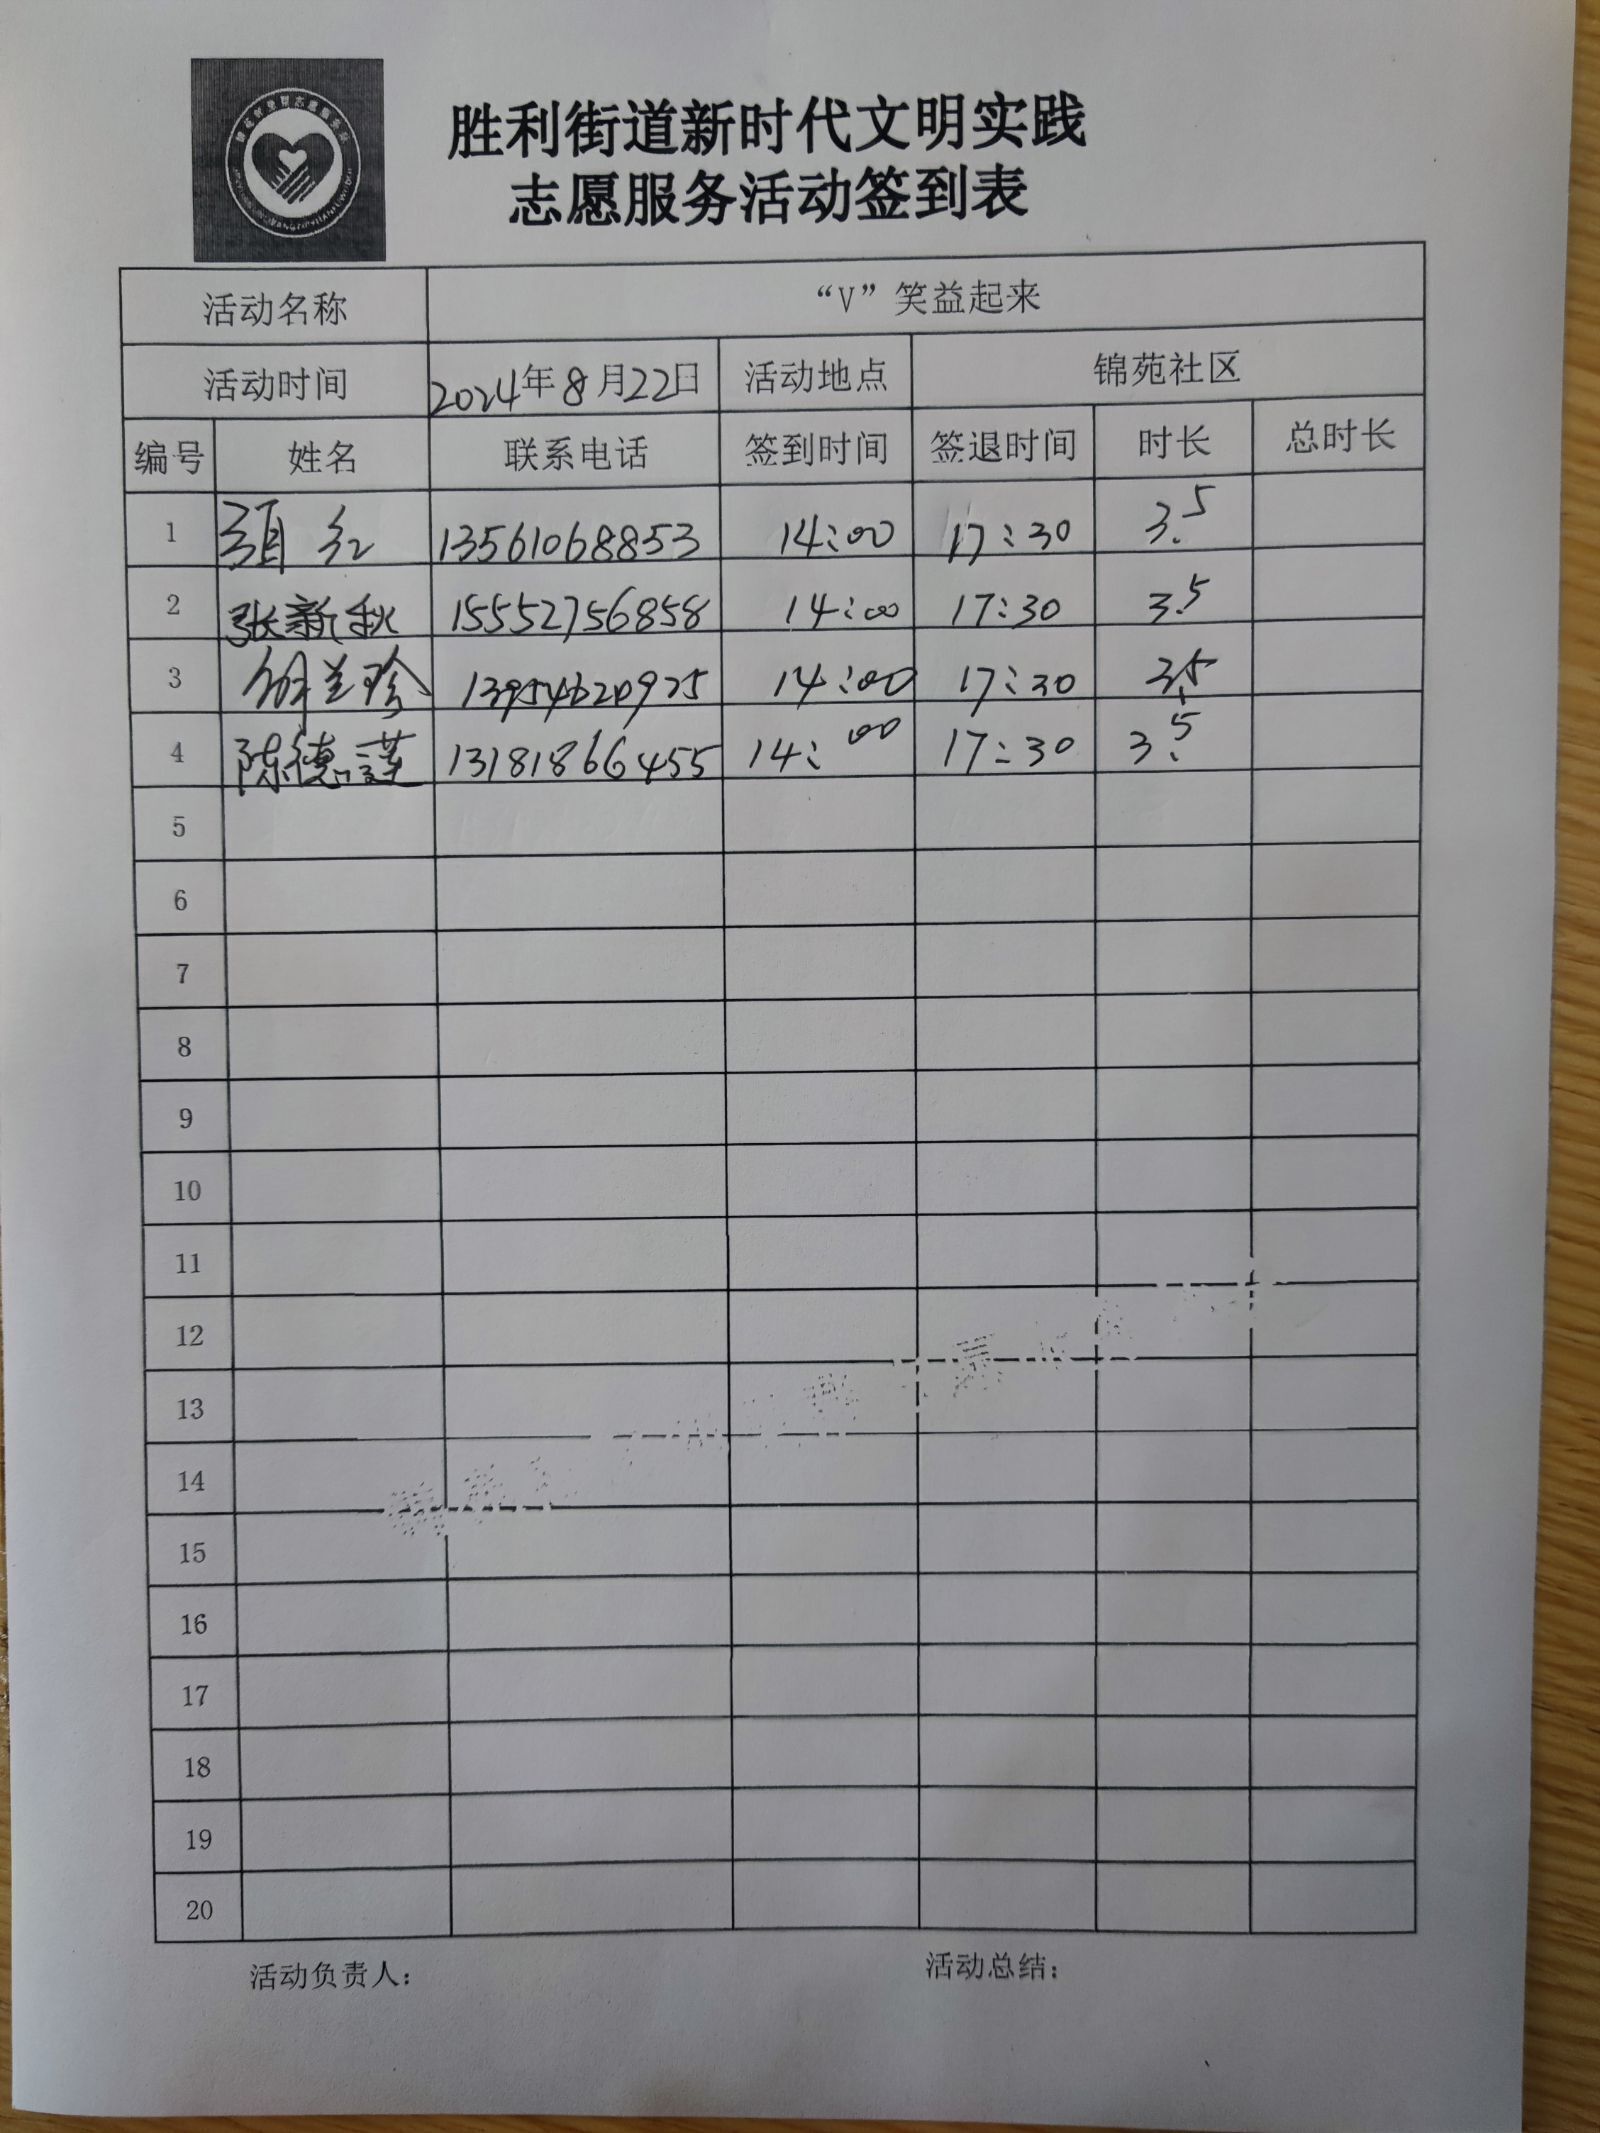 胜利街道新时代文明实践
志愿服务活动签到表
活动名称 “V”笑益起来
活动时间 2024年8月22日 活动地点 锦苑社区
编号 姓名 联系电话 签到时间 签退时间 时长 总时长
1 红 13561068853 14:00 17:30 3.5
2 张新秋 15552756858 14:00 17:30 3.5
3 兰珍 13954620925 14:00 17:30 3.5
4 陈德莲 13181866455 14:00 17:30 3.5
5
6
7
8
9
10
11
12
13
14
15
16
17
18
19
20
活动负责人： 活动总结：